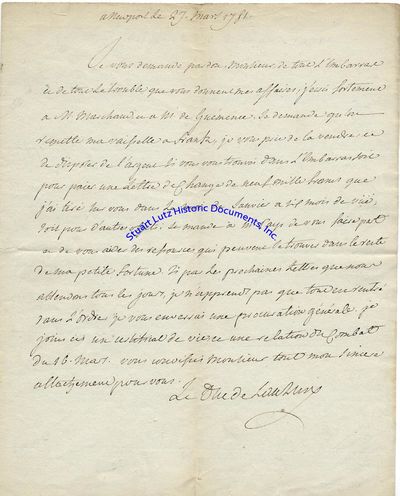 a Newport le 27. Mars 1781.
Je vous demande pardon Monsieur de tout l'embarras
et de tout le trouble que vous donnent mes affaires, j'écris fortement
a Mr Marchand et a Mr de Guemenée. je demande qu'on
remette ma vaisselle a Frantz, je vous prie de la vendre, et
disposer de l'argent si vous vous trouvez dans l'embarras
pour païer une lettre de change de neuf mille francs que
j'ai tiré sur vous dans le de Janvier a six mois de vüe,
soit pour d'autres je mande a Mr de vous
et de vous aider des ressources qui peuvent se trouver dans le reste
de ma petite fortune. Si par les prochaines lettres que nous
attendons tous les jours, je n'apprend pas que tout est rentré
dans l'ordre je vous enverrai une procuration générale. je
joins ici un certificat de vie et une relation du Combat
du 16. Mars. vous connoissez Monsieur tout mon sincere
attachement pour vous.
Le Duc de Lauzun
Stuart Lutz Historic Documents, Inc.